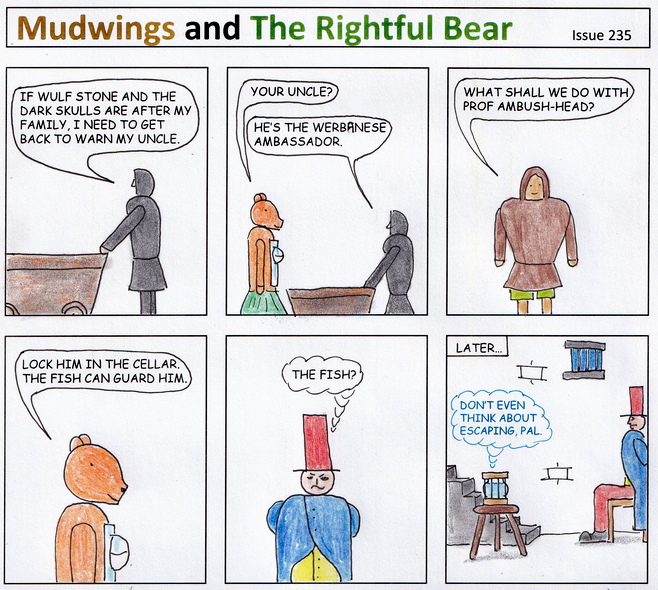 Mudwings and The Rightful Bear
Issue 235
IF WULF STONE AND THE
DARK SKULLS ARE AFTER MY
FAMILY, I NEED TO GET
BACK TO WARN MY UNCLE.
YOUR UNCLE?
HE'S THE WERBANESE
AMBASSADOR.
WHAT SHALL WE DO WITH
PROF AMBUSH-HEAD?
LOCK HIM IN THE CELLAR.
THE FISH CAN GUARD HIM.
THE FISH?
LATER...
DON'T EVEN
THINK ABOUT
ESCAPING, PAL.